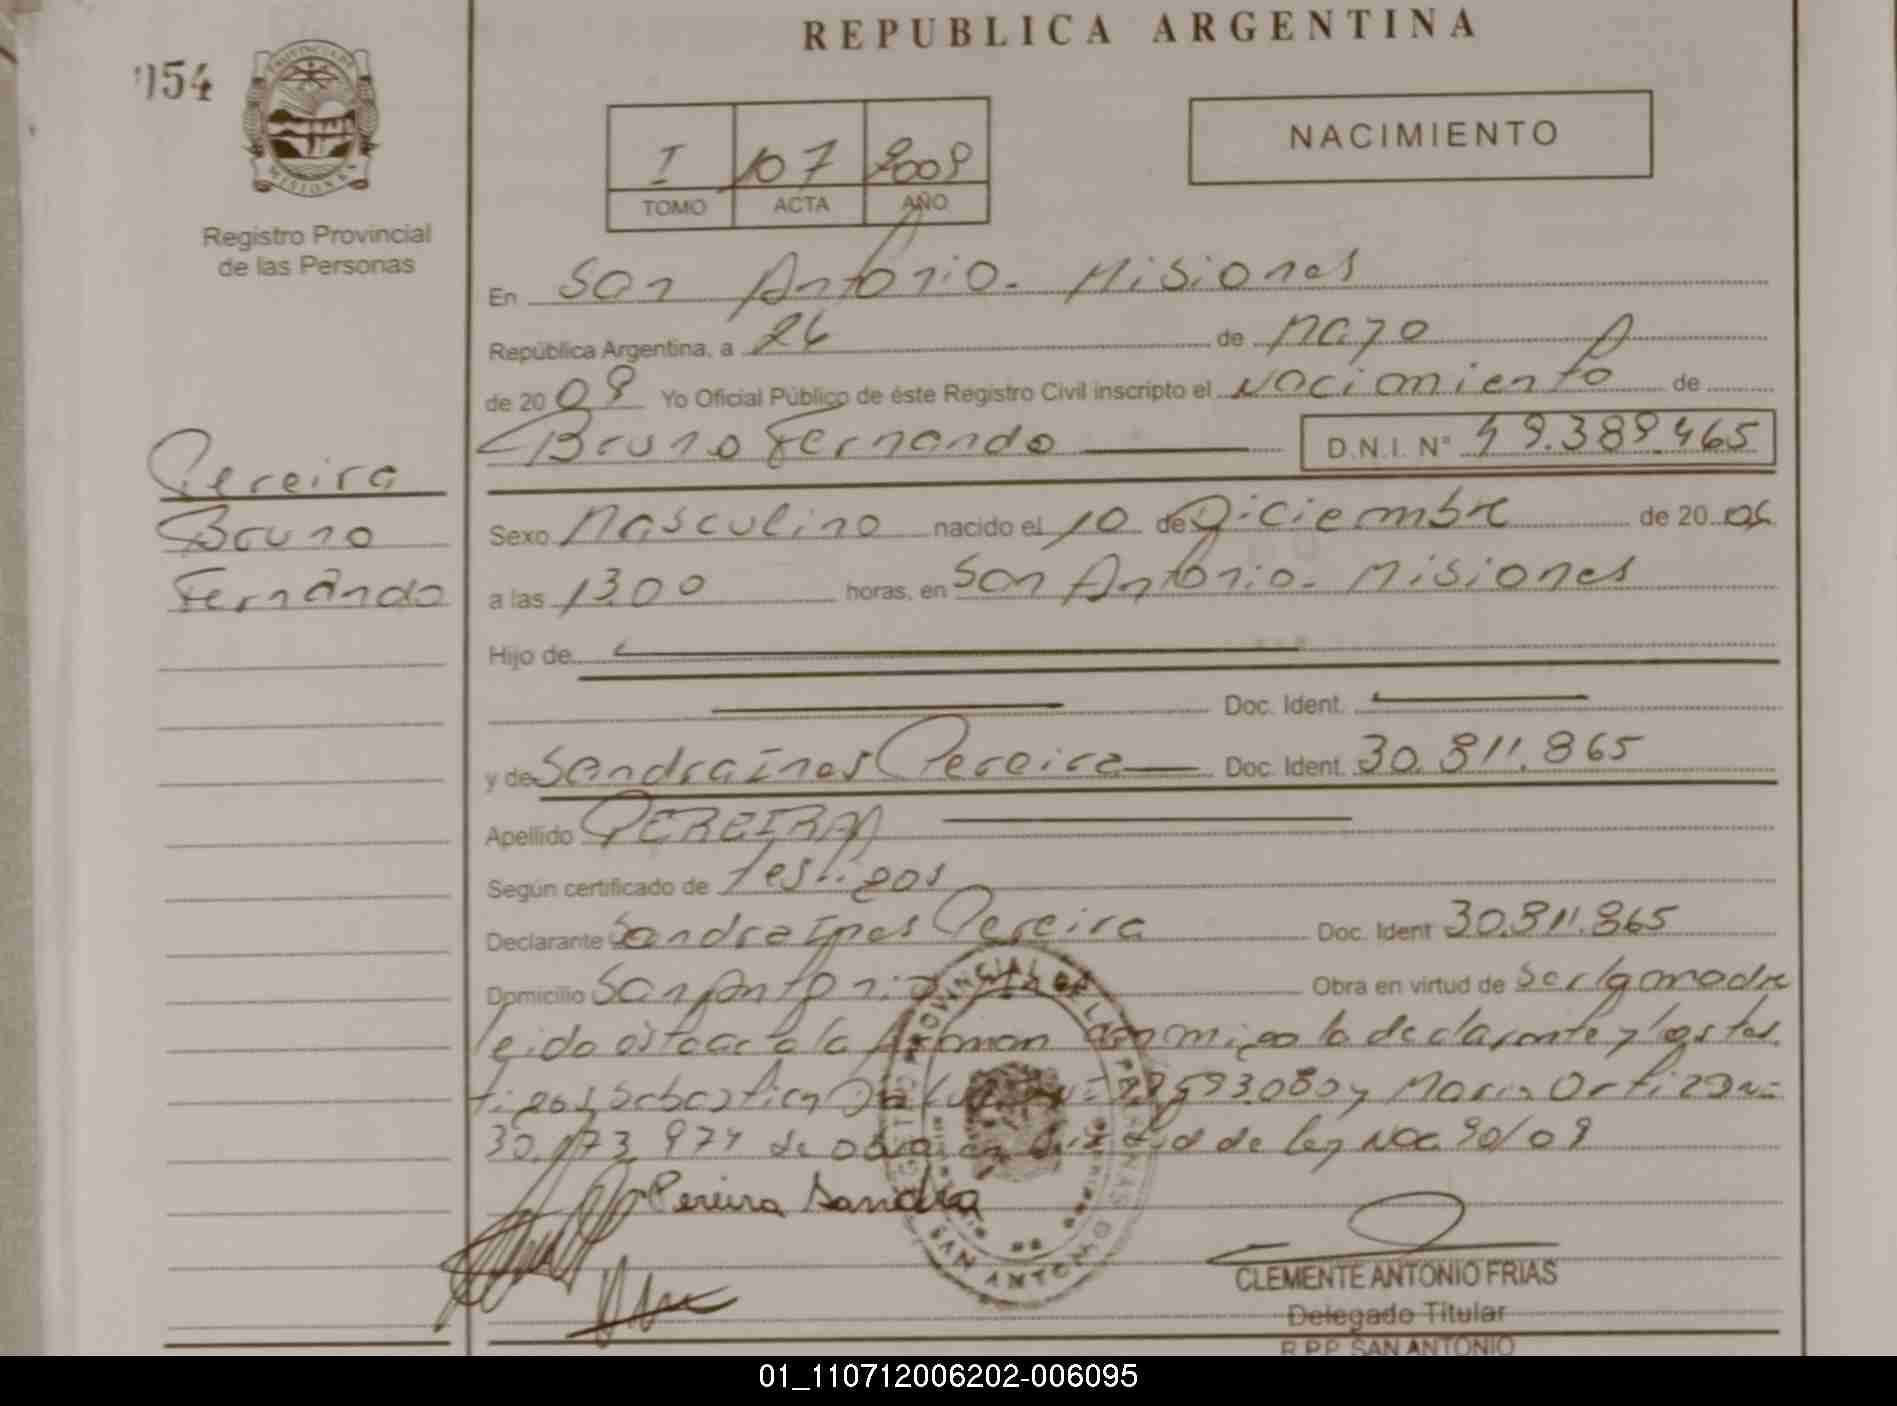 154
REPUBLICA ARGENTINA
PROVINCIA DE
MISIONES
Registro Provincial
de las Personas
I 107 2009
TOMO ACTA AÑO
NACIMIENTO
En San Antonio - Misiones
República Argentina, a 26 de Mayo
de 2009 Yo Oficial Público de éste Registro Civil inscripto el Nacimiento de
Bruno Fernando D.N.I. Nº 49.389.465
Pereira
Bruno
Fernando
Sexo Masculino nacido el 10 de Diciembre de 20
a las 13.00 horas, en San Antonio - Misiones
Hijo de
Doc. Ident.
y de Sandra Ines Pereira Doc. Ident. 30.811.865
Apellido PEREIRA
Según certificado de testigos
Declarante Sandra Ines Pereira Doc. Ident 30.811.865
Domicilio San Antonio Obra en virtud de ser la madre
leido esta acta la firman conmigo la declarante y los tes
tigos Sebastian y Maria Ortiz
30.173.974 se obra en virtud de ley 90/09
Pereira Sandra
SAN ANTONIO
CLEMENTE ANTONIO FRIAS
Delegado Titular
R.P.P. SAN ANTONIO
01_110712006202-006095